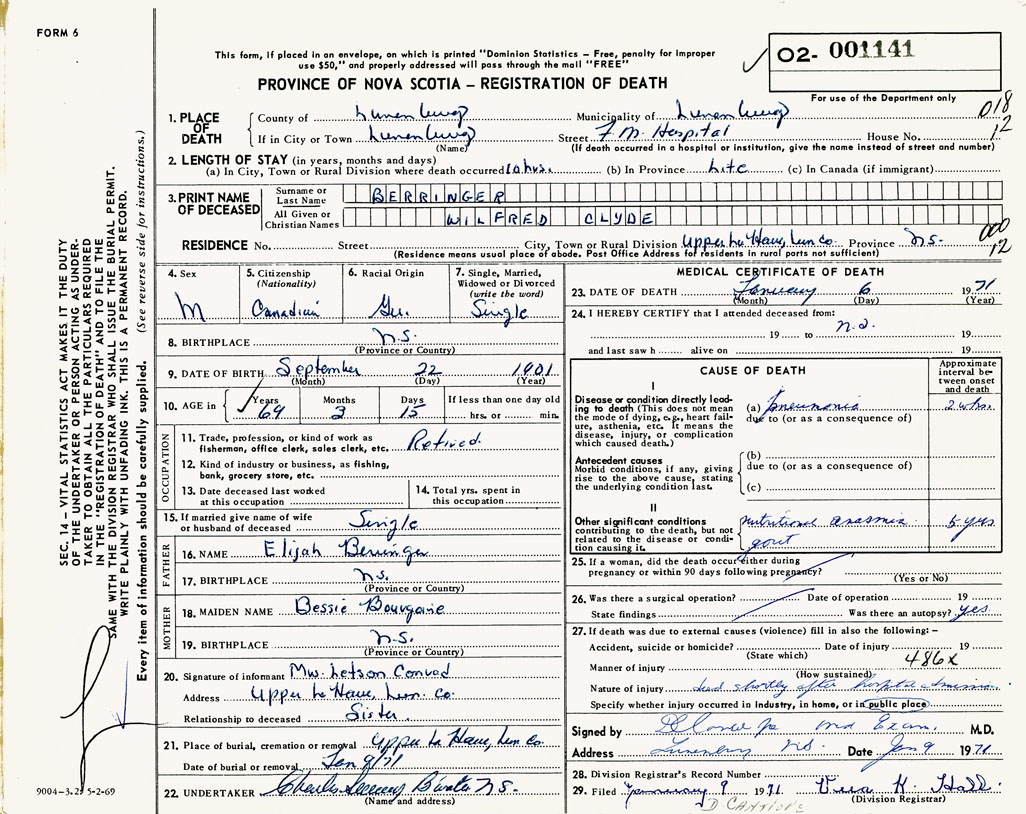 FORM 6
This form, if placed in an envelope, on which is printed "Dominion Statistics – Free, penalty for improper
use $50," and properly addressed will pass through the mail "FREE"
PROVINCE OF NOVA SCOTIA – REGISTRATION OF DEATH
O2- 001141
For use of the Department only
018
12
1. PLACE OF DEATH
County of Lunenburg Municipality of Lunenburg
If in City or Town Lunenburg Street F. M. Hospital House No.
(Name) (If death occurred in a hospital or institution, give the name instead of street and number)
2. LENGTH OF STAY (in years, months and days)
(a) In City, Town or Rural Division where death occurred 10 hrs. (b) In Province Life (c) In Canada (if immigrant)
3. PRINT NAME OF DECEASED
Surname or Last Name BERRINGER
All Given or Christian Names WILFRED CLYDE
000
12
RESIDENCE No. Street City, Town or Rural Division Upper La Have, Lun Co. Province N.S.
(Residence means usual place of abode. Post Office Address for residents in rural parts not sufficient)
4. Sex M
5. Citizenship (Nationality) Canadian
6. Racial Origin Gr.
7. Single, Married, Widowed or Divorced (write the word) Single
8. BIRTHPLACE N.S.
(Province or Country)
9. DATE OF BIRTH September 22 1901
(Month) (Day) (Year)
10. AGE in Years 69 Months 3 Days 15 If less than one day old hrs. or min.
OCCUPATION
11. Trade, profession, or kind of work as
fisherman, office clerk, sales clerk, etc. Retired
12. Kind of industry or business, as fishing,
bank, grocery store, etc.
13. Date deceased last worked
at this occupation
14. Total yrs. spent in
this occupation
15. If married give name of wife
or husband of deceased Single
FATHER
16. NAME Elijah Berringer
17. BIRTHPLACE N.S.
(Province or Country)
MOTHER
18. MAIDEN NAME Bessie
19. BIRTHPLACE N.S.
(Province or Country)
20. Signature of informant Mrs. Letson Conrad
Address Upper La Have, Lun. Co.
Relationship to deceased Sister
21. Place of burial, cremation or removal Upper La Have, Lun Co.
Date of burial or removal Jan 9/71
22. UNDERTAKER Charles B'water N.S.
(Name and address)
MEDICAL CERTIFICATE OF DEATH
23. DATE OF DEATH January 6 1971
(Month) (Day) (Year)
24. I HEREBY CERTIFY that I attended deceased from:
19 to n.a. 19
and last saw h alive on 19
CAUSE OF DEATH
Approximate interval between onset and death
I
Disease or condition directly leading to death (This does not mean the mode of dying, e.g., heart failure, asthenia, etc. It means the disease, injury, or complication which caused death.)
(a) pneumonia 2 wks.
due to (or as a consequence of)
Antecedent causes
Morbid conditions, if any, giving rise to the above cause, stating the underlying condition last.
(b)
due to (or as a consequence of)
(c)
II
Other significant conditions
contributing to the death, but not related to the disease or condition causing it.
nutritional anaemia 5 yrs
gout
25. If a woman, did the death occur either during
pregnancy or within 90 days following pregnancy?
(Yes or No)
26. Was there a surgical operation? Date of operation 19
State findings Was there an autopsy? yes
27. If death was due to external causes (violence) fill in also the following: –
Accident, suicide or homicide? Date of injury 19
(State which)
486x
Manner of injury
(How sustained)
Nature of injury died shortly after hospital admission.
Specify whether injury occurred in industry, in home, or in public place)
Signed by Med Exam. M.D.
Address Lunenburg NS. Date Jan 9 1971
28. Division Registrar's Record Number
29. Filed January 9 1971 K. Hall
(Division Registrar)
SEC. 14 – VITAL STATISTICS ACT MAKES IT THE DUTY
OF THE UNDERTAKER OR PERSON ACTING AS UNDER-
TAKER TO OBTAIN ALL THE PARTICULARS REQUIRED
IN THE "REGISTRATION OF DEATH" AND TO FILE THE
SAME WITH THE DIVISION REGISTRAR WHO SHALL ISSUE THE BURIAL PERMIT.
WRITE PLAINLY WITH UNFADING INK. THIS IS A PERMANENT RECORD.
Every item of information should be carefully supplied. (See reverse side for instructions.)
9004-3.2 5-2-69